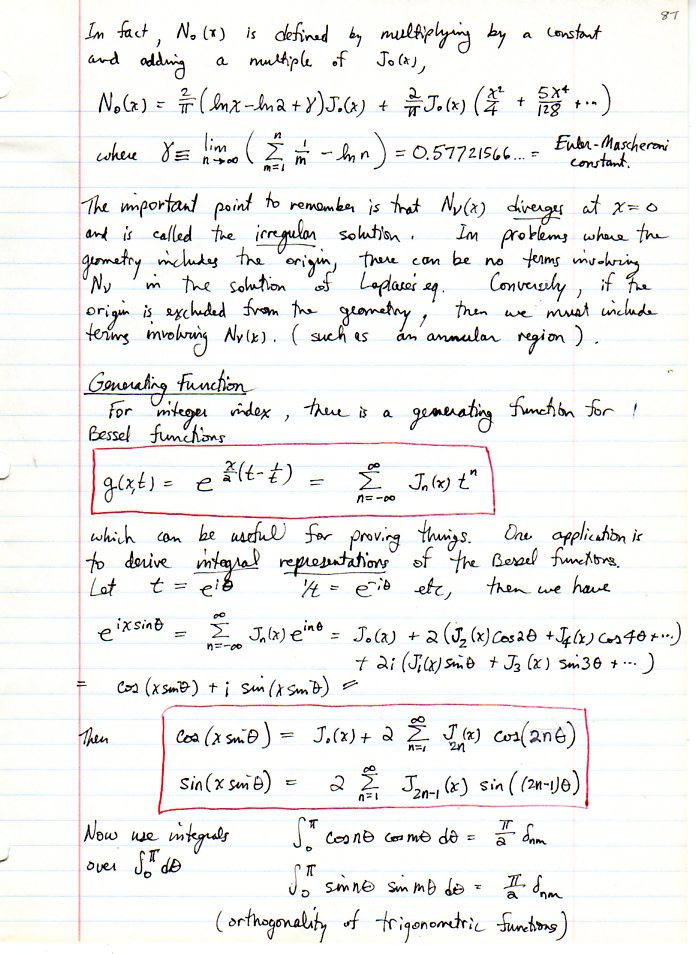 87
In fact, N₀(x) is defined by multiplying by a constant
and adding a multiple of J₀(x),
N₀(x) = 2/π (ln x - ln 2 + γ) J₀(x) + 2/π J₀(x) (x²/4 + 5x⁴/128 + ...)
where γ ≡ lim n→∞ ( Σ_{m=1}^{n} 1/m - ln n ) = 0.57721566... = Euler-Mascheroni constant.
The important point to remember is that N_ν(x) diverges at x=0
and is called the irregular solution. In problems where the
geometry includes the origin, there can be no terms involving
N_ν in the solution of Laplace's eq. Conversely, if the
origin is excluded from the geometry, then we must include
terms involving N_ν(x). (such as an annular region).
Generating Function
For integer index, there is a generating function for
Bessel functions
g(x,t) = e^{x/2 (t - 1/t)} = Σ_{n=-∞}^{∞} J_n(x) t^n
which can be useful for proving things. One application is
to derive integral representations of the Bessel functions.
Let t = e^{iθ} 1/t = e^{-iθ} etc, then we have
e^{ix sinθ} = Σ_{n=-∞}^{∞} J_n(x) e^{inθ} = J₀(x) + 2(J₂(x) cos2θ + J₄(x) cos4θ + ...)
+ 2i (J₁(x) sinθ + J₃(x) sin3θ + ...)
= cos(x sinθ) + i sin(x sinθ) =
Then cos(x sinθ) = J₀(x) + 2 Σ_{n=1}^{∞} J_{2n}(x) cos(2nθ)
sin(x sinθ) = 2 Σ_{n=1}^{∞} J_{2n-1}(x) sin((2n-1)θ)
Now use integrals ∫₀^π cos nθ cos mθ dθ = π/2 δ_{nm}
over ∫₀^π dθ
∫₀^π sin nθ sin mθ dθ = π/2 δ_{nm}
(orthogonality of trigonometric functions)